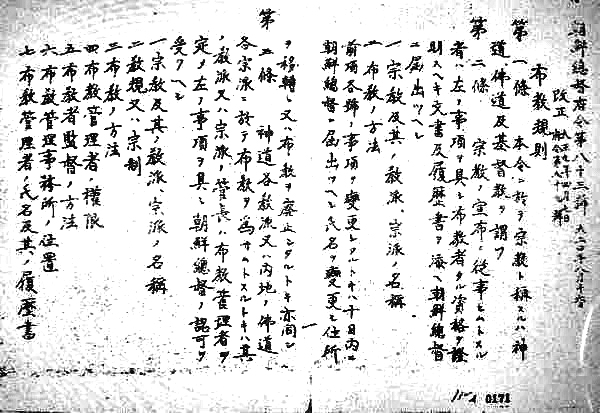 朝鮮總督府令第八十三號
布教規則
第一條 本令ニ於テ宗教ト稱スルハ神
道、佛道及基督教ヲ謂フ
第二條 宗教ノ宣布ニ從事セムトスル
者ハ左ノ事項ヲ具シ布教者タル資格ヲ證
明スヘキ文書及履歷書ヲ添ヘ朝鮮總督
ニ届出ツヘシ
一 宗教及其ノ教派、宗派ノ名稱
二 布教ノ方法
前項各號ノ事項ヲ變更シタルトキハ十日内ニ
朝鮮總督ニ届出ツヘシ氏名ヲ變更シ住所
ヲ移轉シ又ハ布教ヲ廢止シタルトキ亦同シ
第三條 神道各教派又ハ内地ノ佛道
各宗派ニ於テ布教ヲ爲サムトスルトキハ其
ノ教派又ハ宗派ノ管長ハ布教管理者ヲ
定メ左ノ事項ヲ具シ朝鮮總督ノ認可ヲ
受クヘシ
一 宗教及其ノ教派、宗派ノ名稱
二 教規又ハ宗制
三 布教ノ方法
四 布教管理者ノ權限
五 布教者監督ノ方法
六 布教管理事務所ノ位置
七 布教管理者ノ氏名及其ノ履歷書
0171